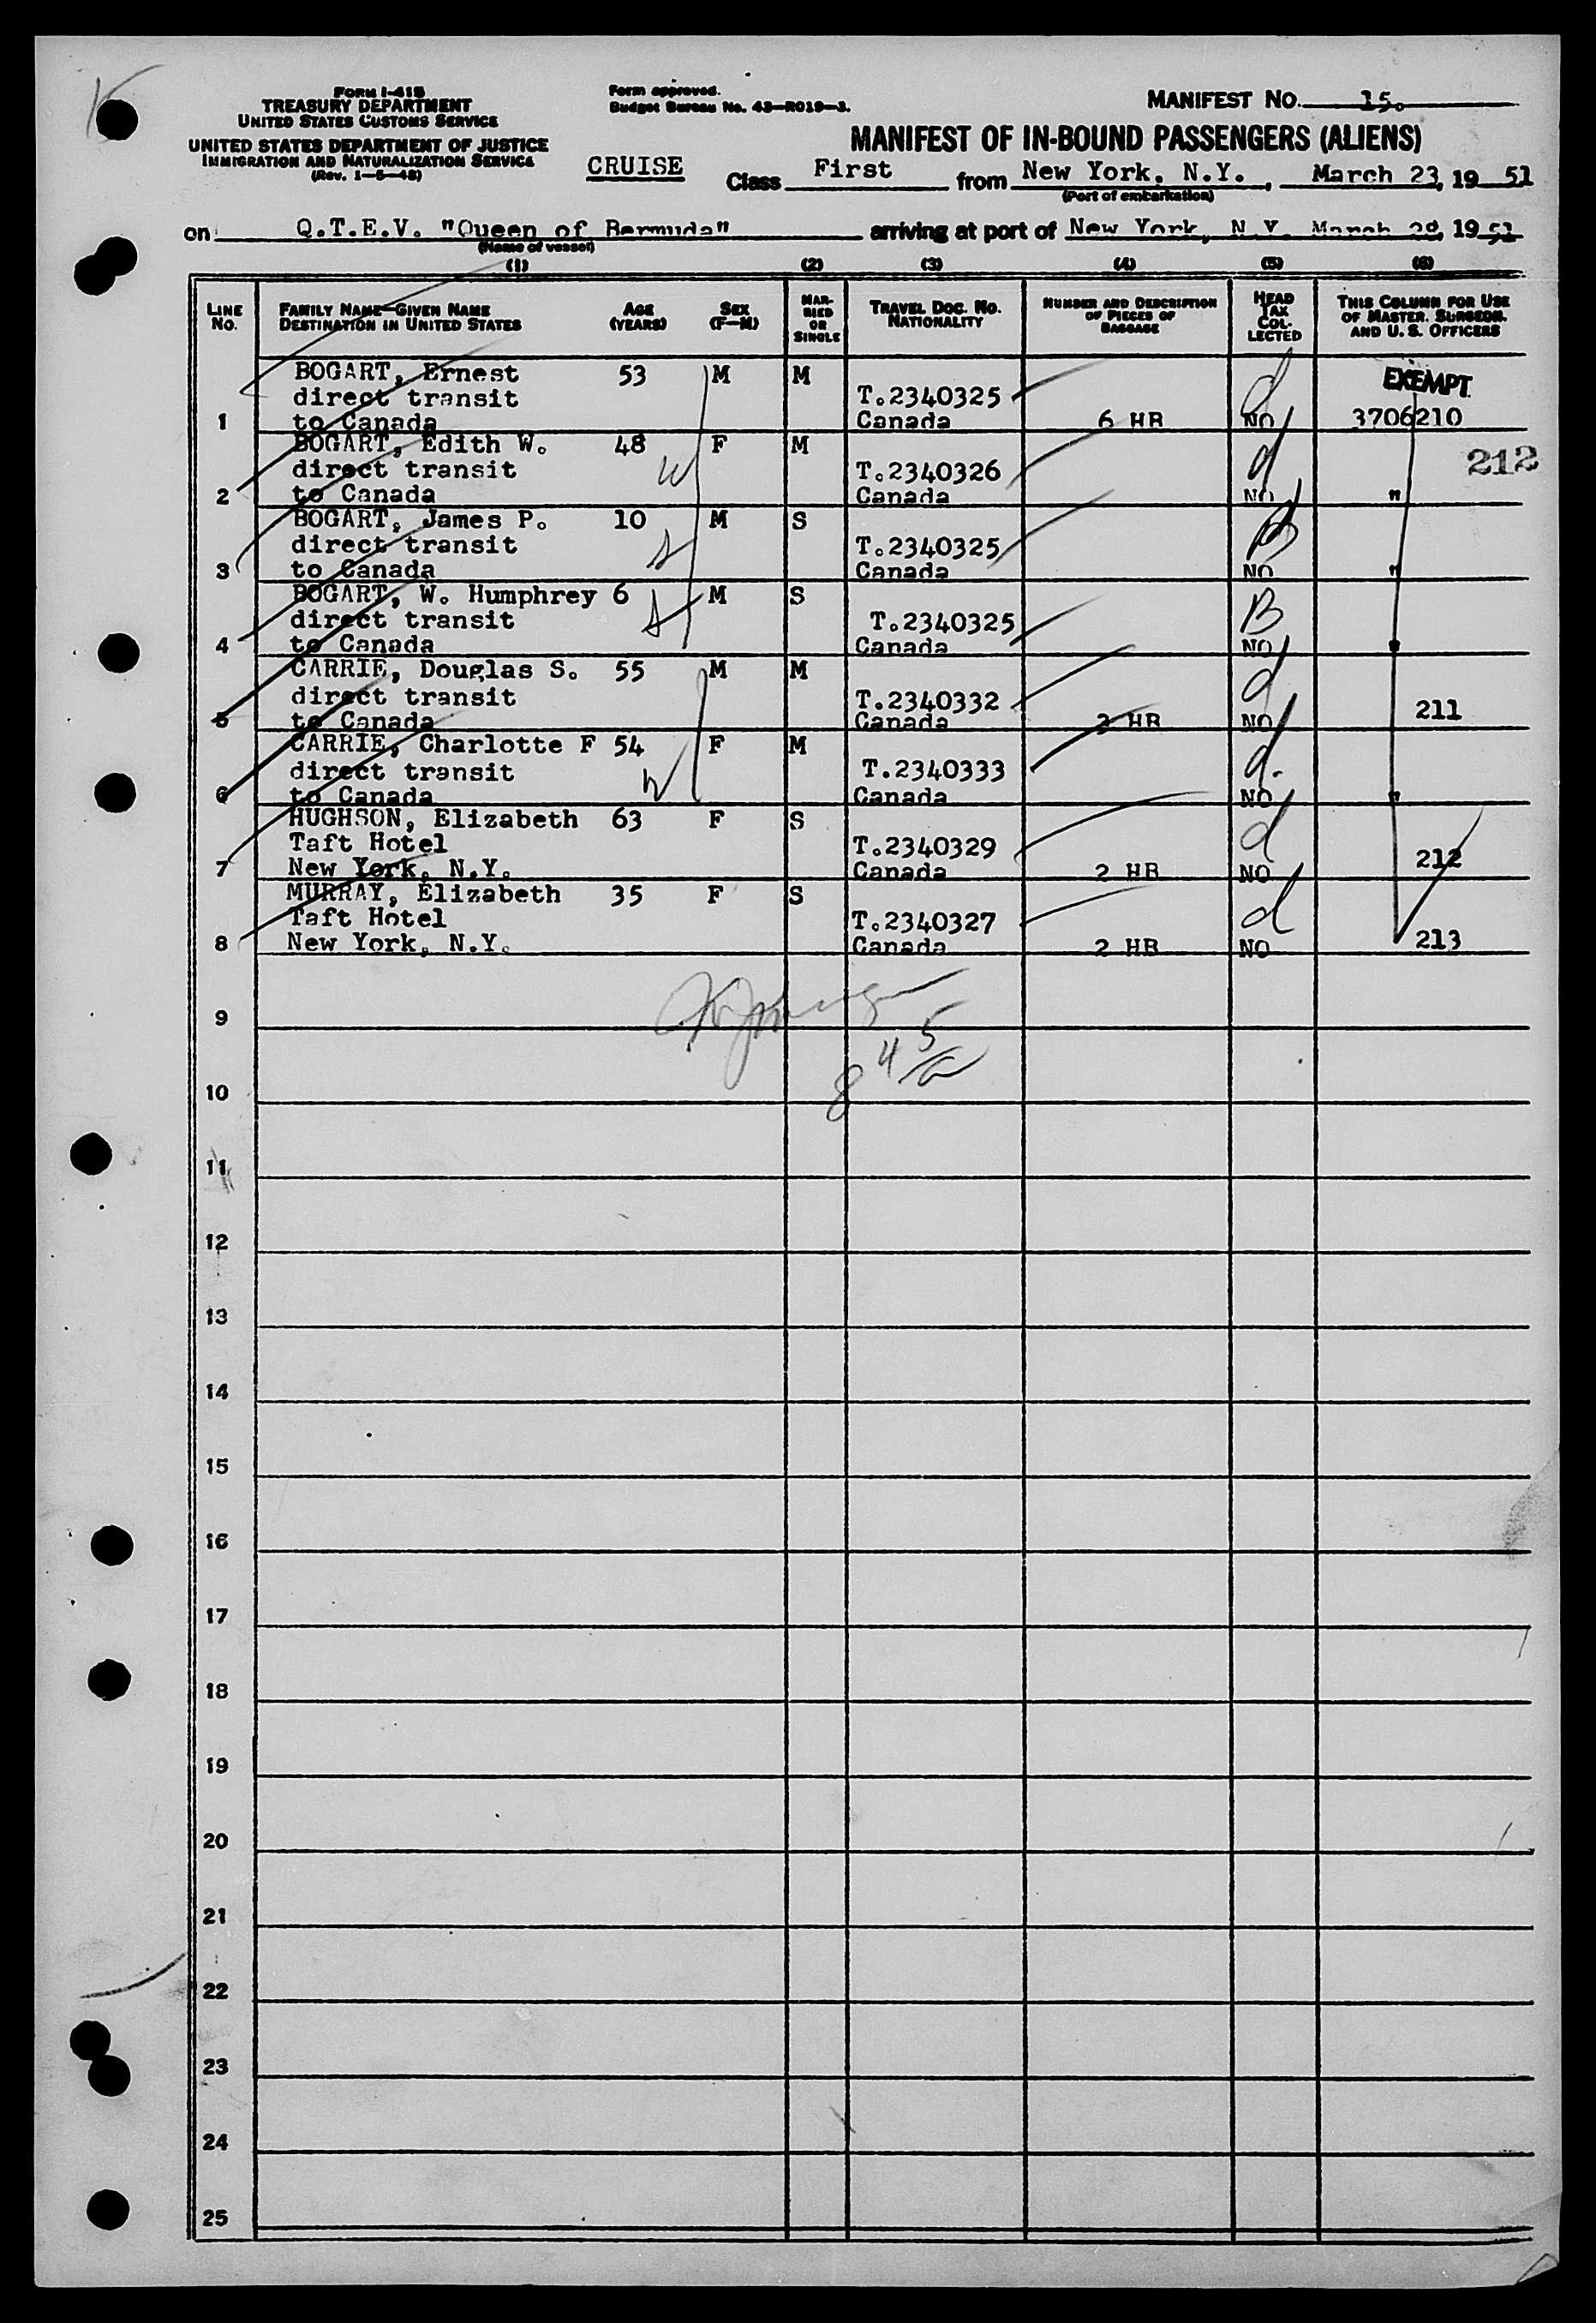 FORM I-415
TREASURY DEPARTMENT
UNITED STATES CUSTOMS SERVICE
UNITED STATES DEPARTMENT OF JUSTICE
IMMIGRATION AND NATURALIZATION SERVICE
(Rev. 1-5-48)
Form approved.
Budget Bureau No. 43-R019-3.
MANIFEST NO. 15.
MANIFEST OF IN-BOUND PASSENGERS (ALIENS)
CRUISE Class First from New York, N.Y., March 23, 19 51
(Port of embarkation)
on Q.T.E.V. "Queen of Bermuda" arriving at port of New York, N.Y. March 19 51
(Name of vessel)
(1) (2) (3) (4) (5) (6)
LINE NO. FAMILY NAME—GIVEN NAME DESTINATION IN UNITED STATES AGE (YEARS) SEX (F—M) MARRIED OR SINGLE TRAVEL DOC. NO. NATIONALITY NUMBER AND DESCRIPTION OF PIECES OF BAGGAGE HEAD TAX COLLECTED THIS COLUMN FOR USE OF MASTER, SURGEON, AND U. S. OFFICERS
BOGART, Ernest 53 M M EXEMPT
direct transit T.2340325
1 to Canada Canada 6 HB NO 3706210
BOGART, Edith W. 48 F M 212
direct transit W T.2340326
2 to Canada Canada NO "
BOGART, James P. 10 M S
direct transit T.2340325
3 to Canada Canada NO "
BOGART, W. Humphrey 6 M S B
direct transit T.2340325
4 to Canada Canada NO "
CARRIE, Douglas S. 55 M M
direct transit T.2340332 211
5 to Canada Canada 3 HB NO
CARRIE, Charlotte F 54 F M
direct transit W T.2340333
6 to Canada Canada NO "
HUGHSON, Elizabeth 63 F S
Taft Hotel T.2340329
7 New York, N.Y. Canada 2 HB NO 212
MURRAY, Elizabeth 35 F S
Taft Hotel T.2340327
8 New York, N.Y. Canada 2 HB NO 213
9
8 4 5
10
11
12
13
14
15
16
17
18
19
20
21
22
23
24
25